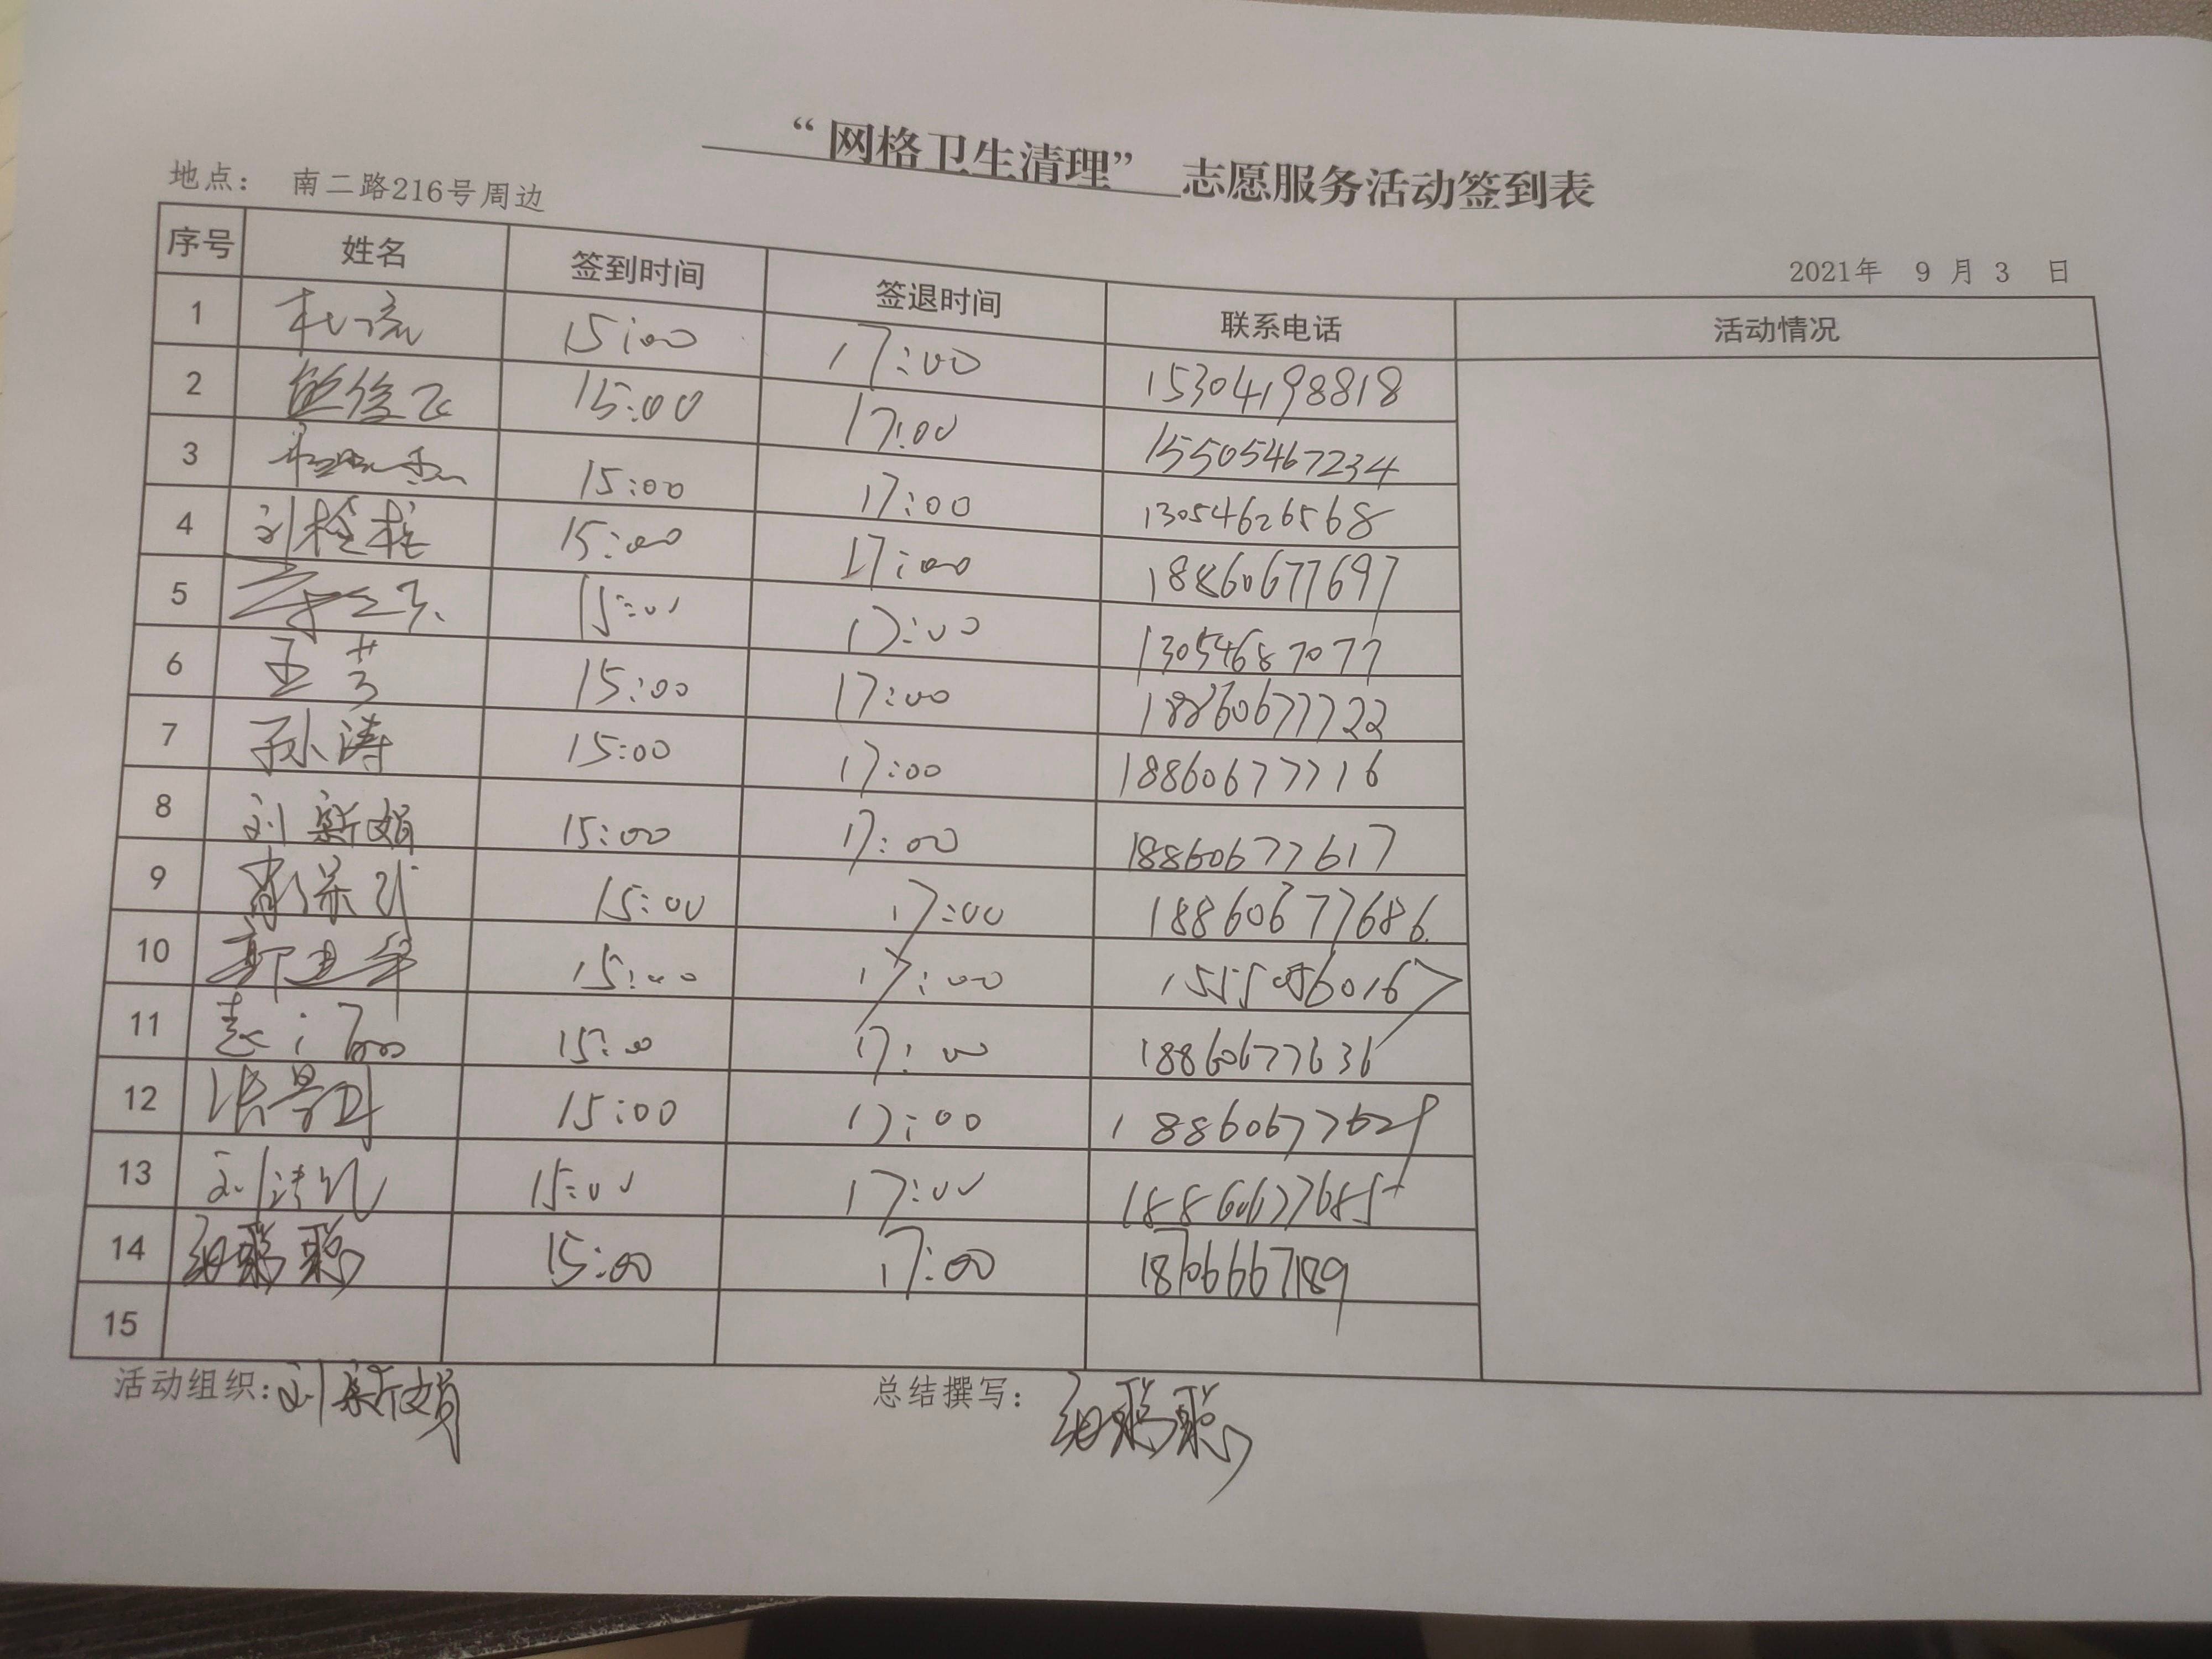 “网格卫生清理” 志愿服务活动签到表
地点： 南二路216号周边
2021年 9 月 3 日
序号 姓名 签到时间 签退时间 联系电话 活动情况
1 15:00 17:00 15304198818
2 15:00 17:00 15505467234
3 15:00 17:00 13054626568
4 刘检柱 15:00 17:00 18860677697
5 15:00 17:00 13054687077
6 王芳 15:00 17:00 18860677722
7 孙涛 15:00 17:00 18860677716
8 刘新娟 15:00 17:00 18860677617
9 15:00 17:00 18860677686
10 15:00 17:00
11 15:00 17:00 18860677636
12 15:00 17:00 18860677629
13 15:00 17:00 18860677685
14 15:00 17:00 18706667189
15
活动组织：刘新娟
总结撰写：